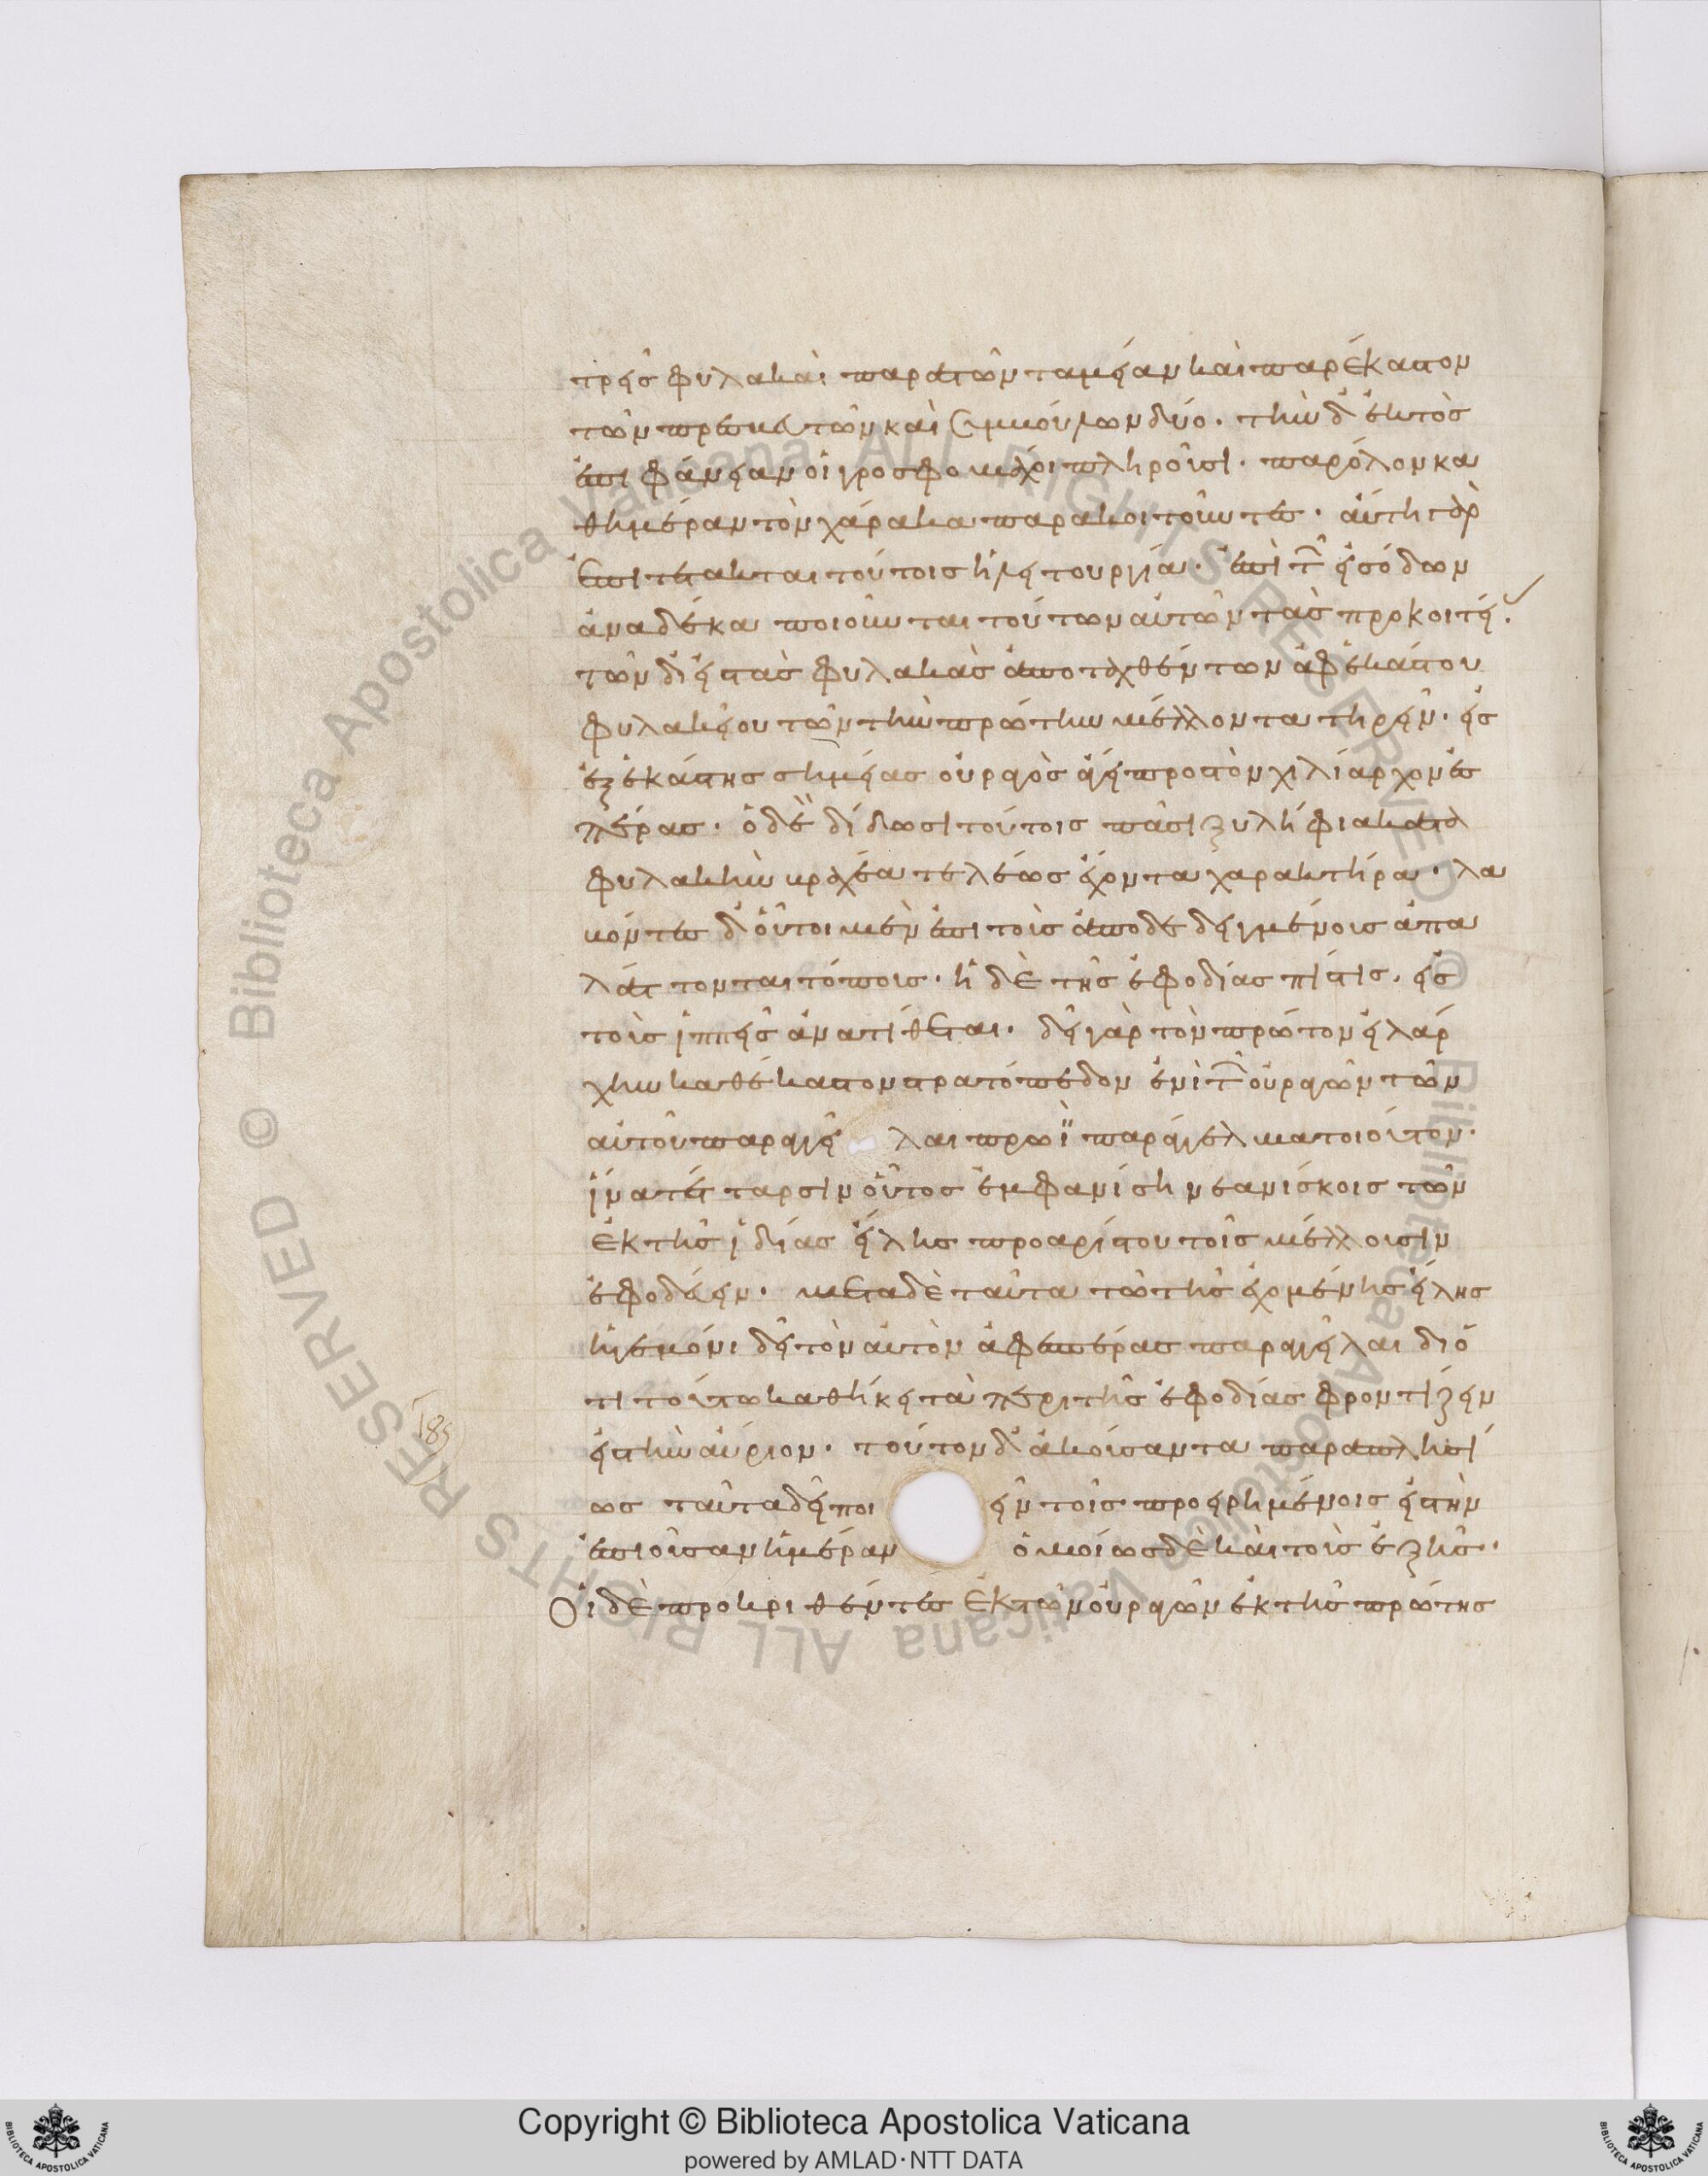 τρεῖς φυλακαὶ παρὰ τῶν ταμείαν καὶ παρ' ἕκαστον
τῶν πρεσβευτῶν καὶ συμβούλων δύο. τὴν δ' ἐκτὸς
ἐπιφάνειαν οἱ γροσφομάχοι πληροῦσι. παρ' ὅλον κα
θημέραν τὸν χάρακα παρακοιτοῦντες. αὕτη γὰρ
ἐπιτέτακται τούτοις ἡ λειτουργία. ἐπὶ τ εἰσόδων
ἀνὰ δέκα ποιοῦνται τούτων αὐτῶν τὰς προκοιτεί
τῶν δ' εἰς τὰς φυλακὰς ἀποταχθέντων ἀφ' ἑκάστου
φυλακείου τῶν τὴν πρώτην μέλλοντα τηρεῖν. εἷς
ἐξ ἑκάστης σημείας οὐραγὸς ἄγει πρὸς τὸν χιλίαρχον ἐσ
πέρας. ὁ δὲ δίδωσι τούτοις πᾶσι ξυλήφια κατὰ
φυλακὴν βραχέα τελέως ἔχοντα χαρακτῆρα. λα
βόντες δ' οὗτοι μὲν ἐπὶ τοὺς ἀποδεδειγμένους ἀπα
λάττονται τόπους. ἡ δὲ τῆς ἐφοδίας πίστις. εἰς
τοὺς ἱππεῖς ἀνατίθεται. δεῖ γὰρ τὸν πρῶτον εἰλάρ
χην καθ' ἕκαστον στρατόπεδον ἑνὶ τ οὐραγῶν τῶν
αὐτοῦ παραγγεῖλαι πρωῒ παράγγελμα τοιοῦτον.
ἵνα τέτταρσιν οὗτος ἐμφανίσῃ νεανίσκοις τῶν
ἐκ τῆς ἰδίας εἴλης πρὸ ἀρίστου τοῖς μέλλουσιν
ἐφοδεύειν. μετὰ δὲ ταῦτα τῷ τῆς ἐχομένης εἴλης
ἡγεμόνι δεῖ τὸν αὐτὸν ἀφ' ἑσπέρας παραγγεῖλαι διό
τι τούτῳ καθήκει τὰ περὶ τῆς ἐφοδίας φροντίζειν
εἰς τὴν αὔριον. τοῦτον δ' ἀκούσαντα παραπλησί
ως ταῦτα δεῖ ποιεῖν τοῖς προειρημένοις εἰς τὴν
ἐπιοῦσαν ἡμέραν ὁμοίως δὲ καὶ τοὺς ἑξῆς.
Οἱ δὲ προκριθέντες ἐκ τῶν οὐραγῶν ἐκ τῆς πρώτης
185
Copyright © Biblioteca Apostolica Vaticana
powered by AMLAD·NTT DATA